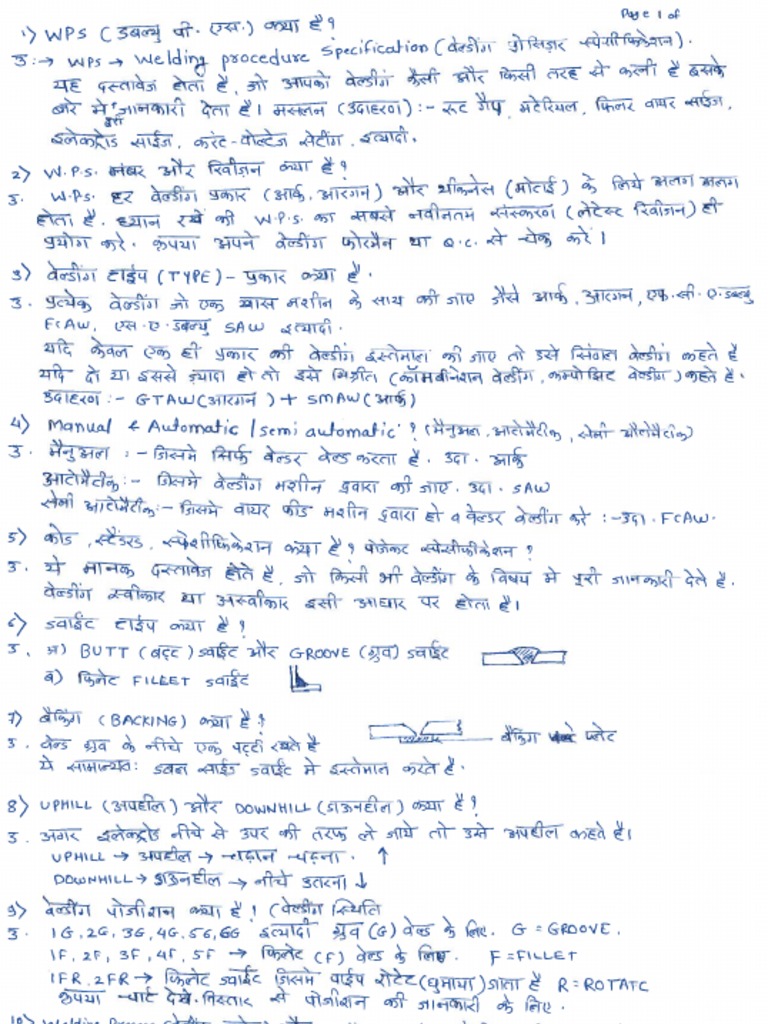 Page 1 of
1) WPS (डबल्यु पी. एस.) क्या है?
उ:→ WPS → Welding procedure Specification (वेल्डींग प्रोसिज़र स्पेशीफिकेशन).
यह दस्तावेज होता है, जो आपको वेल्डींग कैसी और किसी तरह से करनी है इसके
बारे मे जानकारी देता है। मसलन (उदाहरण):- रूट गैप, मटेरियल, फिलर वायर साईज,
इलेक्ट्रोड साईज, करंट-वोल्टेज सेटींग, इत्यादी.
2) W.P.S. नंबर और रिवीज़न क्या है?
उ. W.P.S. हर वेल्डींग प्रकार (आर्क, आरगन) और थीकनेस (मोटाई) के लिये अलग अलग
होता है. ध्यान रखे की W.P.S. का सबसे नवीनतम संस्करण (लेटेस्ट रिवीज़न) ही
प्रयोग करे. कृपया अपने वेल्डींग फोरमैन या Q.C. से चेक करें।
3) वेल्डींग टाईप (TYPE) - प्रकार क्या है.
उ. प्रत्येक वेल्डींग जो एक खास मशीन के साथ की जाए जैसे आर्क, आरगन, एफ.सी.ए.डबल्यु
FCAW, एस.ए.डबल्यु SAW इत्यादी.
यदि केवल एक ही प्रकार की वेल्डींग इस्तेमाल की जाए तो उसे सिंगल वेल्डींग कहते है
यदि दो या इससे ज़्यादा हो तो इसे मिश्रीत (कॉमबीनेशन वेल्डींग, कम्पोझिट वेल्डींग) कहते है.
उदाहरण:- GTAW (आरगन) + SMAW (आर्क)
4) Manual & Automatic / semi automatic? (मैनुअल, आटोमैटीक, सेमी ऑटोमैटीक)
उ. मैनुअल :- जिसमे सिर्फ वेल्डर वेल्ड करता है. उदा. आर्क
आटोमैटीक:- जिसमे वेल्डींग मशीन द्वारा की जाए. उदा. SAW
सेमी आटोमैटीक:- जिसमे वायर फीड मशीन द्वारा हो व वेल्डर वेल्डींग करे :- उदा. FCAW.
5) कोड, स्टैंडरड, स्पेशीफिकेशन क्या है? प्रोजेक्ट स्पेसीफीकेशन?
उ. ये मानक दस्तावेज होते है, जो किसी भी वेल्डींग के विषय मे पूरी जानकारी देते है.
वेल्डींग स्वीकार या अस्वीकार इसी आधार पर होता है।
6) ज्वाईंट टाईप क्या है?
उ. अ) BUTT (बट्ट) ज्वाईंट और GROOVE (ग्रुव) ज्वाईंट
ब) फिलेट FILLET ज्वाईंट
7) बैकिंग (BACKING) क्या है?
उ. वेल्ड ग्रुव के नीचे एक पट्टी रखते है
बैकिंग प्लेट
ये सामान्यतः डबल साईड ज्वाईंट मे इस्तेमाल करते है.
8) UPHILL (अपहील) और DOWNHILL (डाऊनहील) क्या है?
उ. अगर इलेक्ट्रोड नीचे से उपर की तरफ ले जाये तो उसे अपहील कहते है।
UPHILL → अपहील → चढ़ान चढ़ना. ↑
DOWNHILL → डाऊनहील → नीचे उतरना ↓
9) वेल्डींग पोजीशन क्या है? (वेल्डींग स्थिति
उ. 1G, 2G, 3G, 4G, 5G, 6G इत्यादी ग्रुव (G) वेल्ड के लिए. G = GROOVE.
1F, 2F, 3F, 4F, 5F → फिलेट (F) वेल्ड के लिए. F = FILLET
1FR, 2FR → फिलेट ज्वाईंट जिसमे पाईप रोटेट (घुमाया) जाता है R = ROTATE
कृपया चार्ट देखे विस्तार से पोजीशन की जानकारी के लिए.